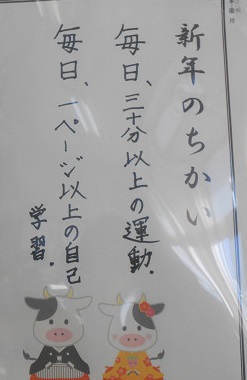 新年のちかい
毎日、三十分以上の運動.
毎日、一ページ以上の自己
学習.